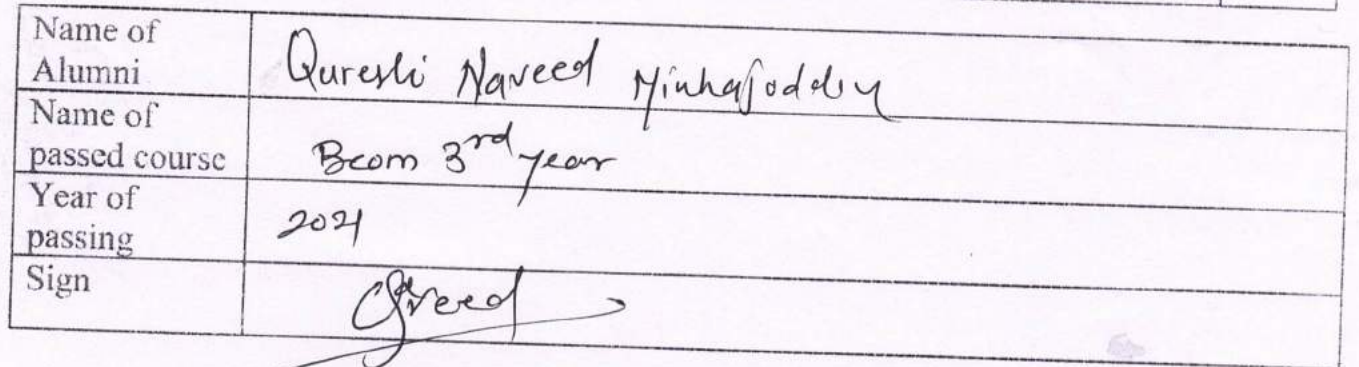 Name of
Alumni
Qureshi Naveed Minhajoddin
Name of
passed course
Bcom 3rd year
Year of
passing
2021
Sign